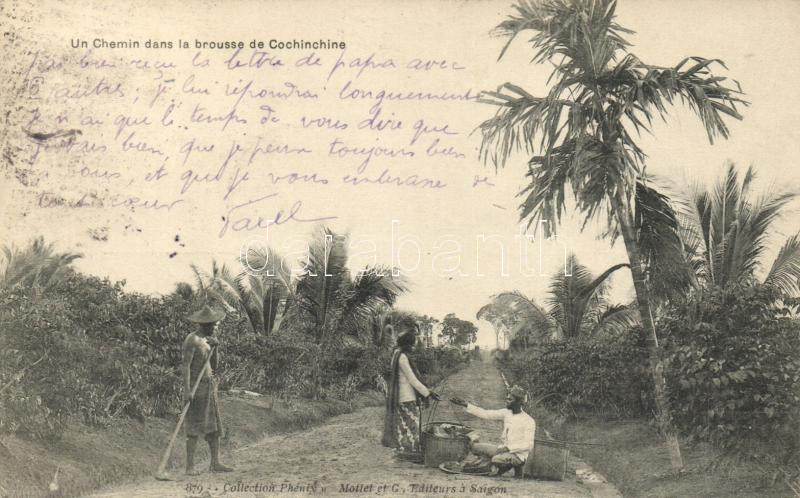 Un Chemin dans la brousse de Cochinchine
J'ai bien reçu la lettre de papa avec
d'autres; je lui répondrai longuement
je n'ai que le temps de vous dire que
je vais bien, que je pense toujours bien
vous, et que je vous embrasse de
tout cœur
darabanth
879 - Collection Phénix Mottet et C, Editeurs à Saigon